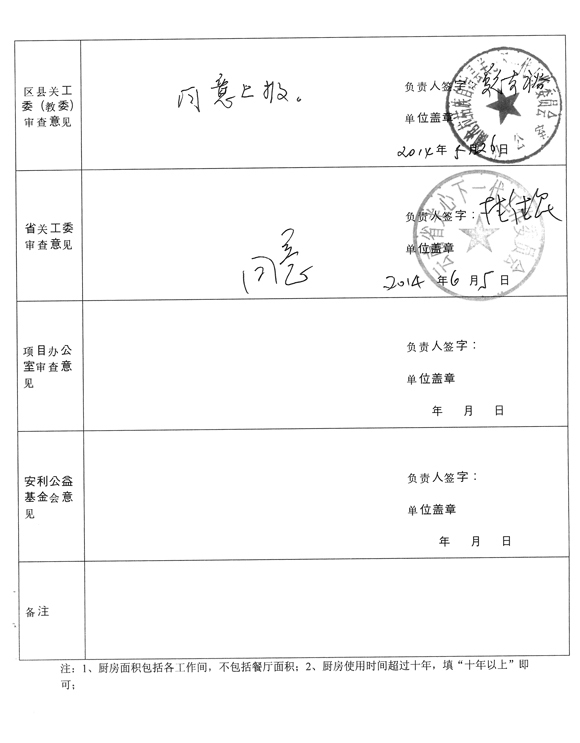 区县关工
委（教委）
审查意见
同意上报。
负责人签字：
单位盖章
2014年5月26日
省关工委
审查意见
同意
负责人签字：
单位盖章
2014年6月5日
项目办公
室审查意
见
负责人签字：
单位盖章
年 月 日
安利公益
基金会意
见
负责人签字：
单位盖章
年 月 日
备注
注：1、厨房面积包括各工作间，不包括餐厅面积；2、厨房使用时间超过十年，填“十年以上”即
可；